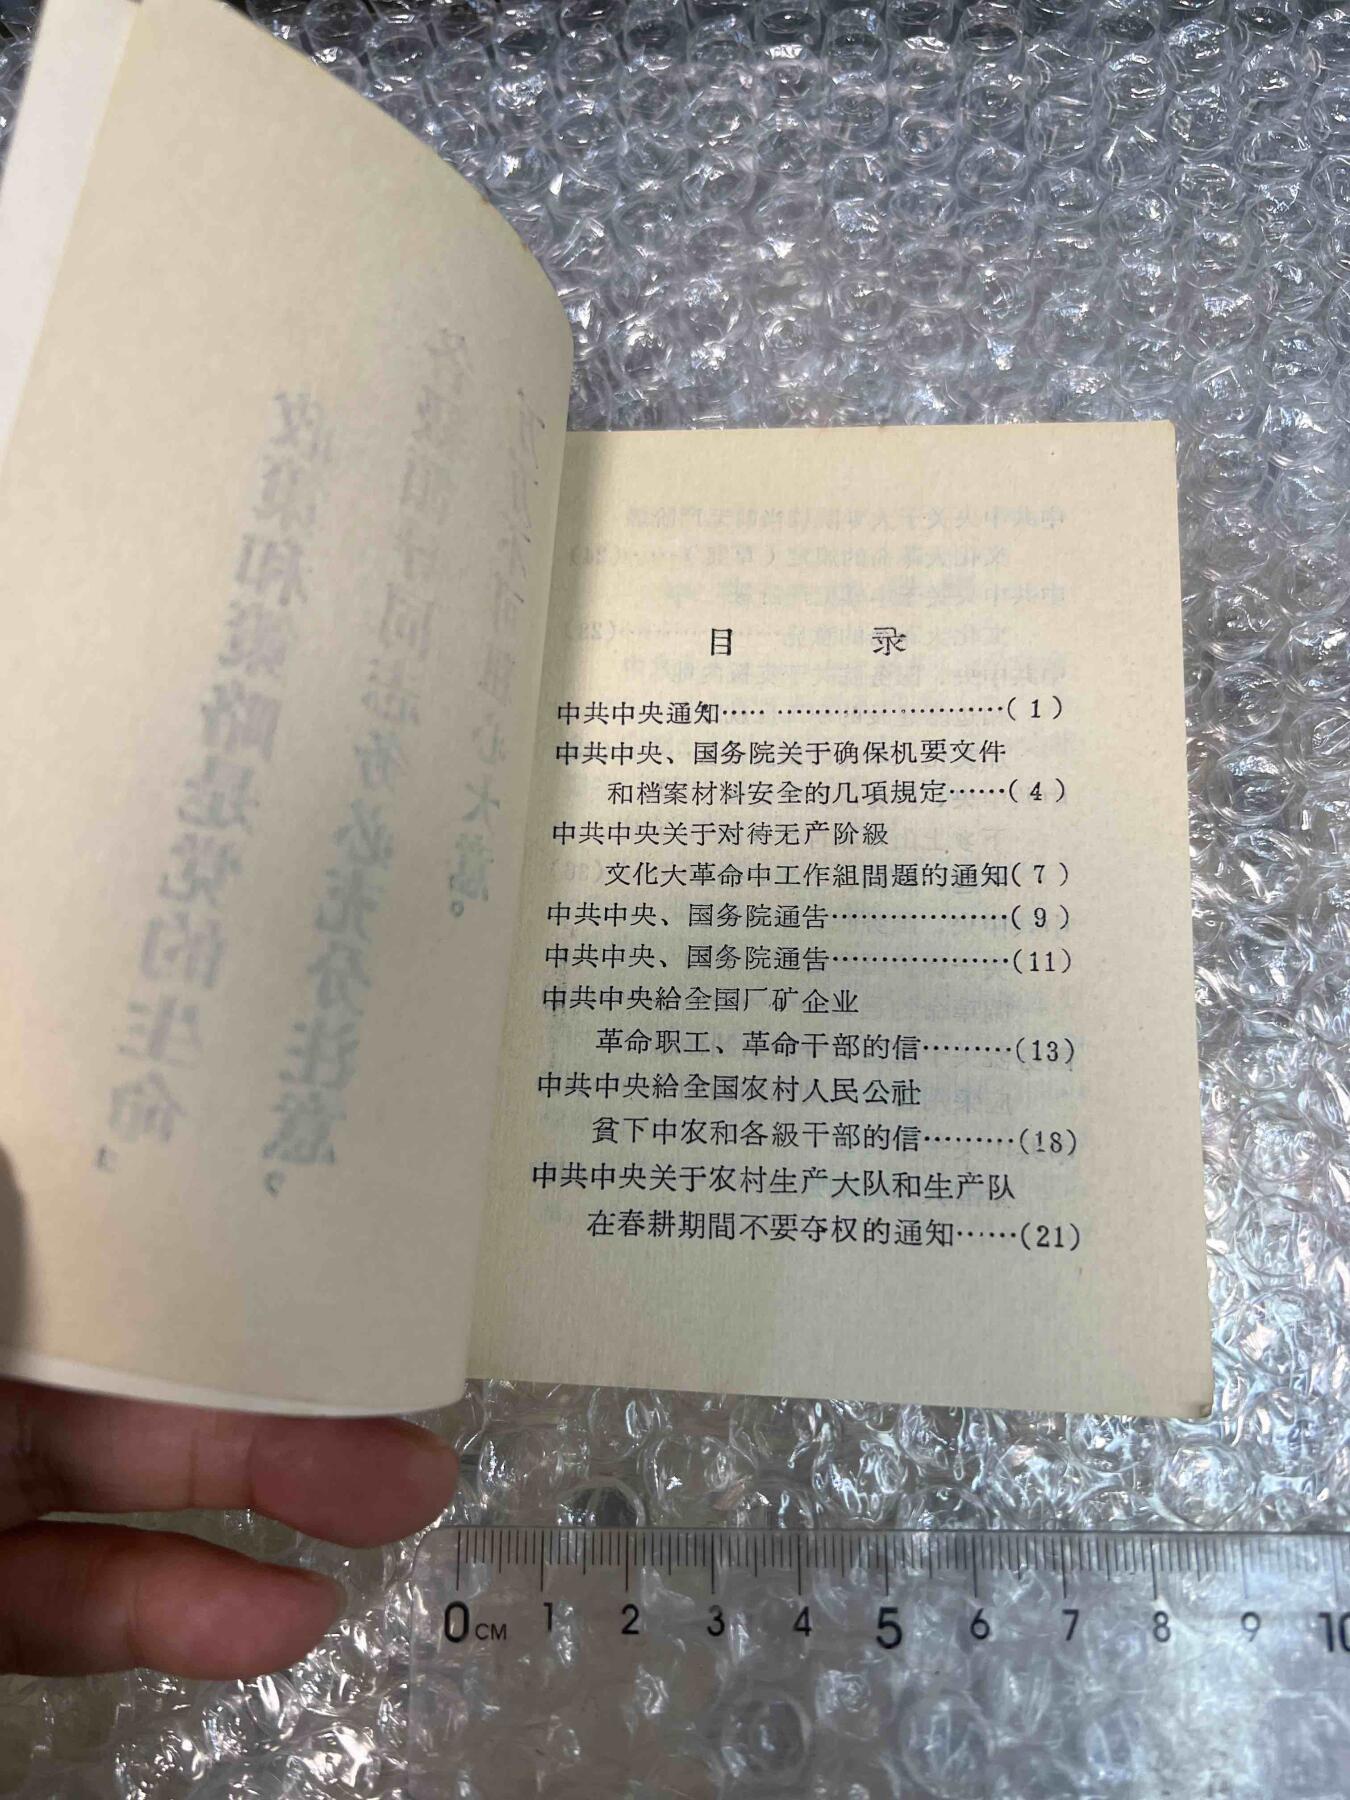 目 录
中共中央通知…… ……………………( 1 )
中共中央、国务院关于确保机要文件
和档案材料安全的几項規定……( 4 )
中共中央关于对待无产阶級
文化大革命中工作組問題的通知( 7 )
中共中央、国务院通告………………( 9 )
中共中央、国务院通告………………(11)
中共中央給全国厂矿企业
革命职工、革命干部的信………(13)
中共中央給全国农村人民公社
貧下中农和各級干部的信………(18)
中共中央关于农村生产大队和生产队
在春耕期間不要夺权的通知……(21)
0 CM 1 2 3 4 5 6 7 8 9 10